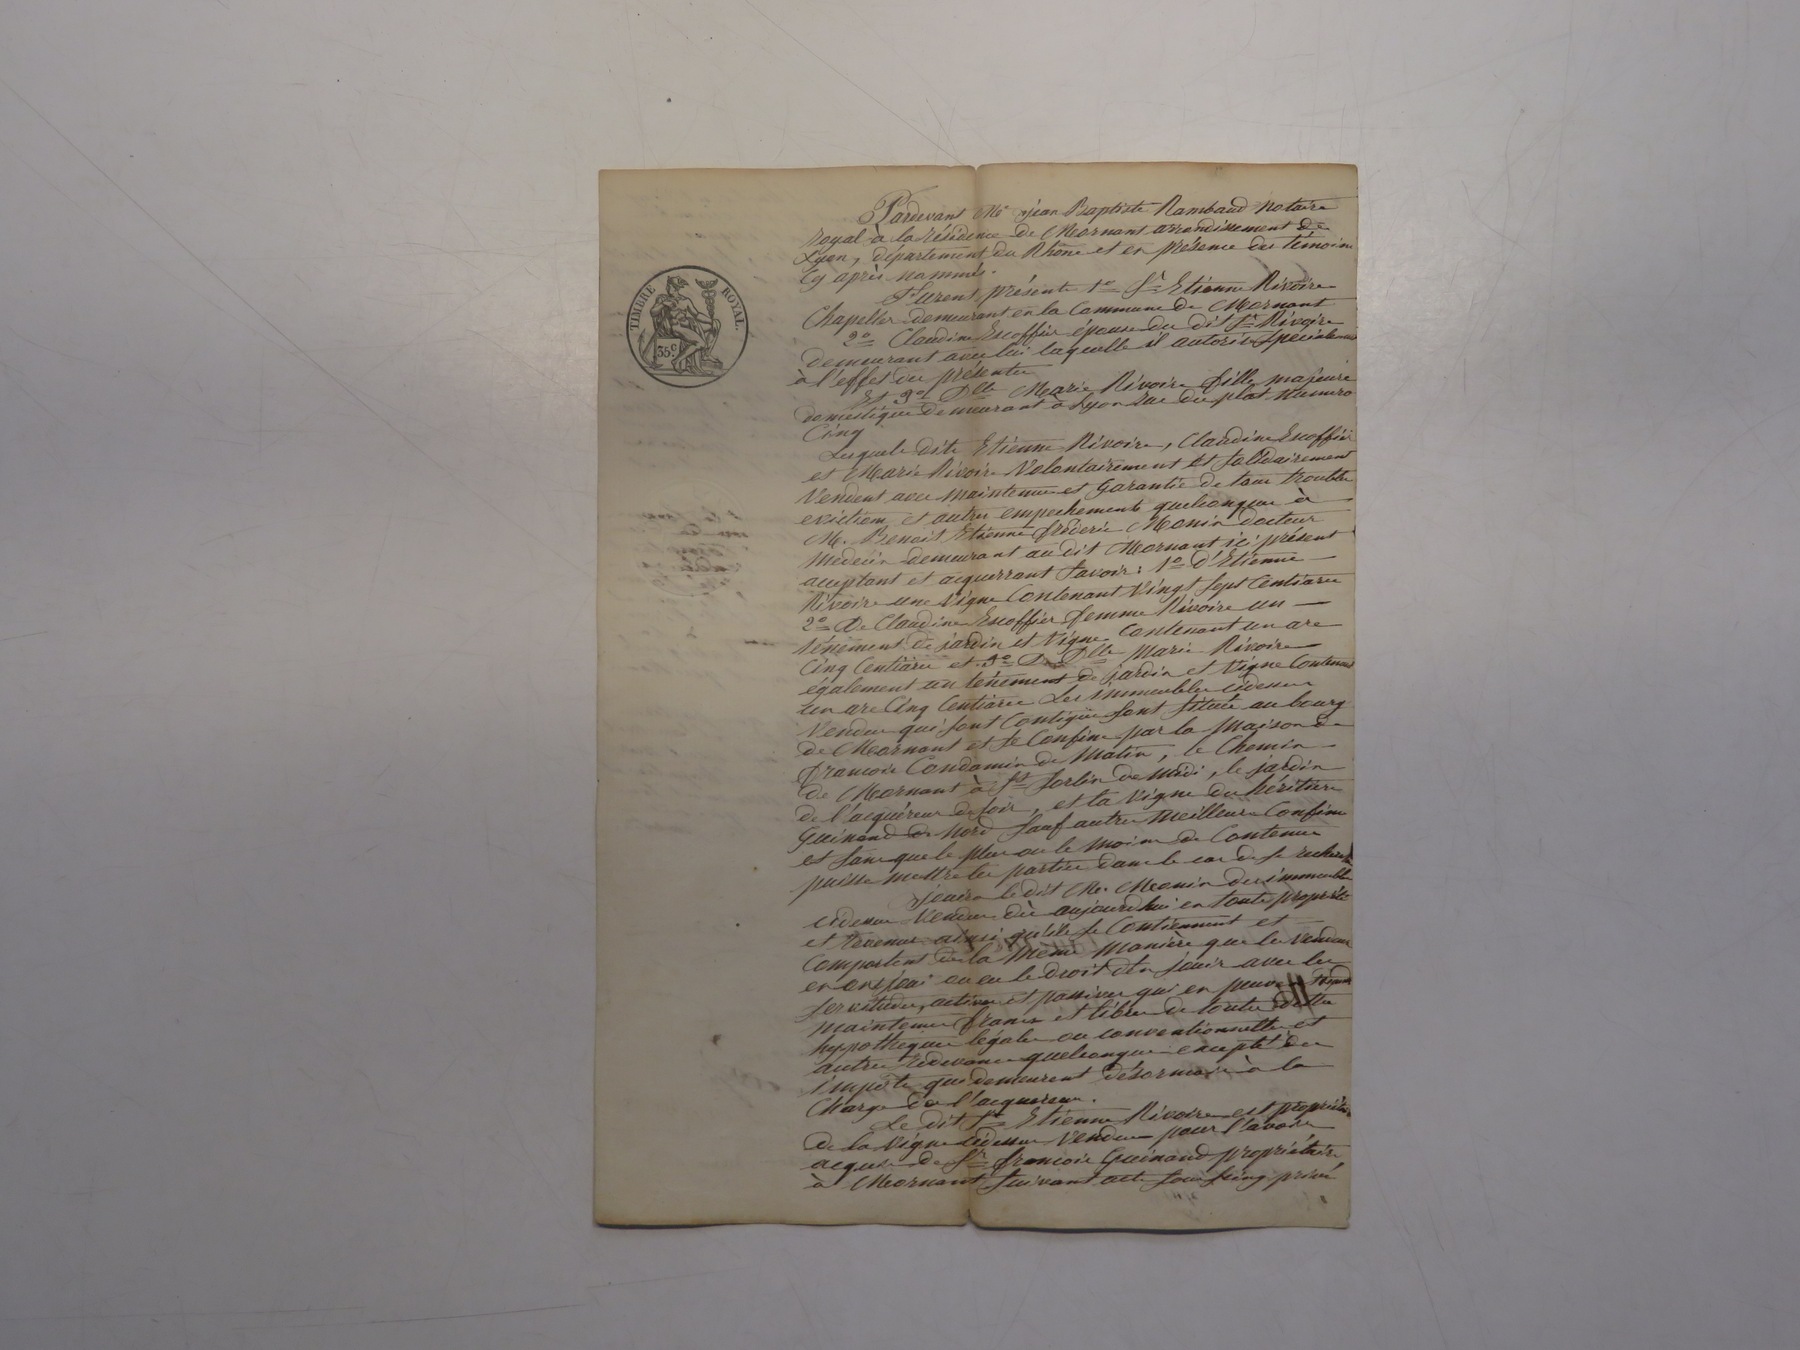 TIMBRE ROYAL.
35c
Pardevant Me jean Baptiste Rambaud notaire
royal à la résidence de Mornant arrondissement de
Lyon, département du Rhône et en présence des témoins
Cy après nommés.
Furent présents 1o Sr Etienne Rivoire
Chapellier demeurant en la Commune de Mornant
2o Claudine Escoffier épouse du dit Sr Rivoire
demeurant avec lui laquelle il autorise spécialement
à l'effet des présentes
Et 3o Dlle Marie Rivoire fille majeure
domestique demeurant à Lyon rue du plat Numéro
Cinq
Lesquels dits Etienne Rivoire, Claudine Escoffier
et Marie Rivoire Volontairement et solidairement
Vendent avec maintenue et garantie de tous troubles
eviction et autres empechements quelconques à
M. Benoit Etienne fréderic Monin docteur
Médecin demeurant au dit Mornant ici présent
acceptant et acquerrant Savoir : 1o d'Etienne
Rivoire une Vigne Contenant Vingt sept Centiares
2o De Claudine Escoffier femme Rivoire un
ténement de jardin et Vigne Contenant un are
Cinq Centiares et 3o De Dlle Marie Rivoire
également un ténement de jardin et Vigne Contenant
un are Cinq Centiares Les immeubles cidessus
Vendus qui sont Contigus sont situés au bourg
de Mornant et se Confine par la maison de
francois Condamin de Matin, le Chemin
de Mornant à St Sorlin de midi, le jardin
de l'acquéreur de soir, et la Vigne des héritiers
Guinand de Nord Sauf autres Meilleurs Confins
et sans que le plus ou le moins de Contenue
puisse mettre les parties dans le cas de se rechercher
jouira le dit M. Monin des immeubles
cidessus Vendus dès aujourd'hui en toute propriété
et revenus ainsi qu'ils se Contiennent et
Comportent de la même manière que les Vendeurs
en ont joui ou eu le droit d'en jouir avec les
servitudes actives et passives qui en peuvent dépendre
maintenus francs et libres de toutes dettes
hypothèques légales ou conventionnelles et
autres redevances quelconques excepté des
impôts qui demeurent désormais à la
Charge de l'acquereur.
Le dit Sr Etienne Rivoire est propriétaire
de la Vigne cidessus Vendue pour l'avoir
acquise de Sr francois Guinand propriétaire
à Mornant Suivant acte sous seing privé